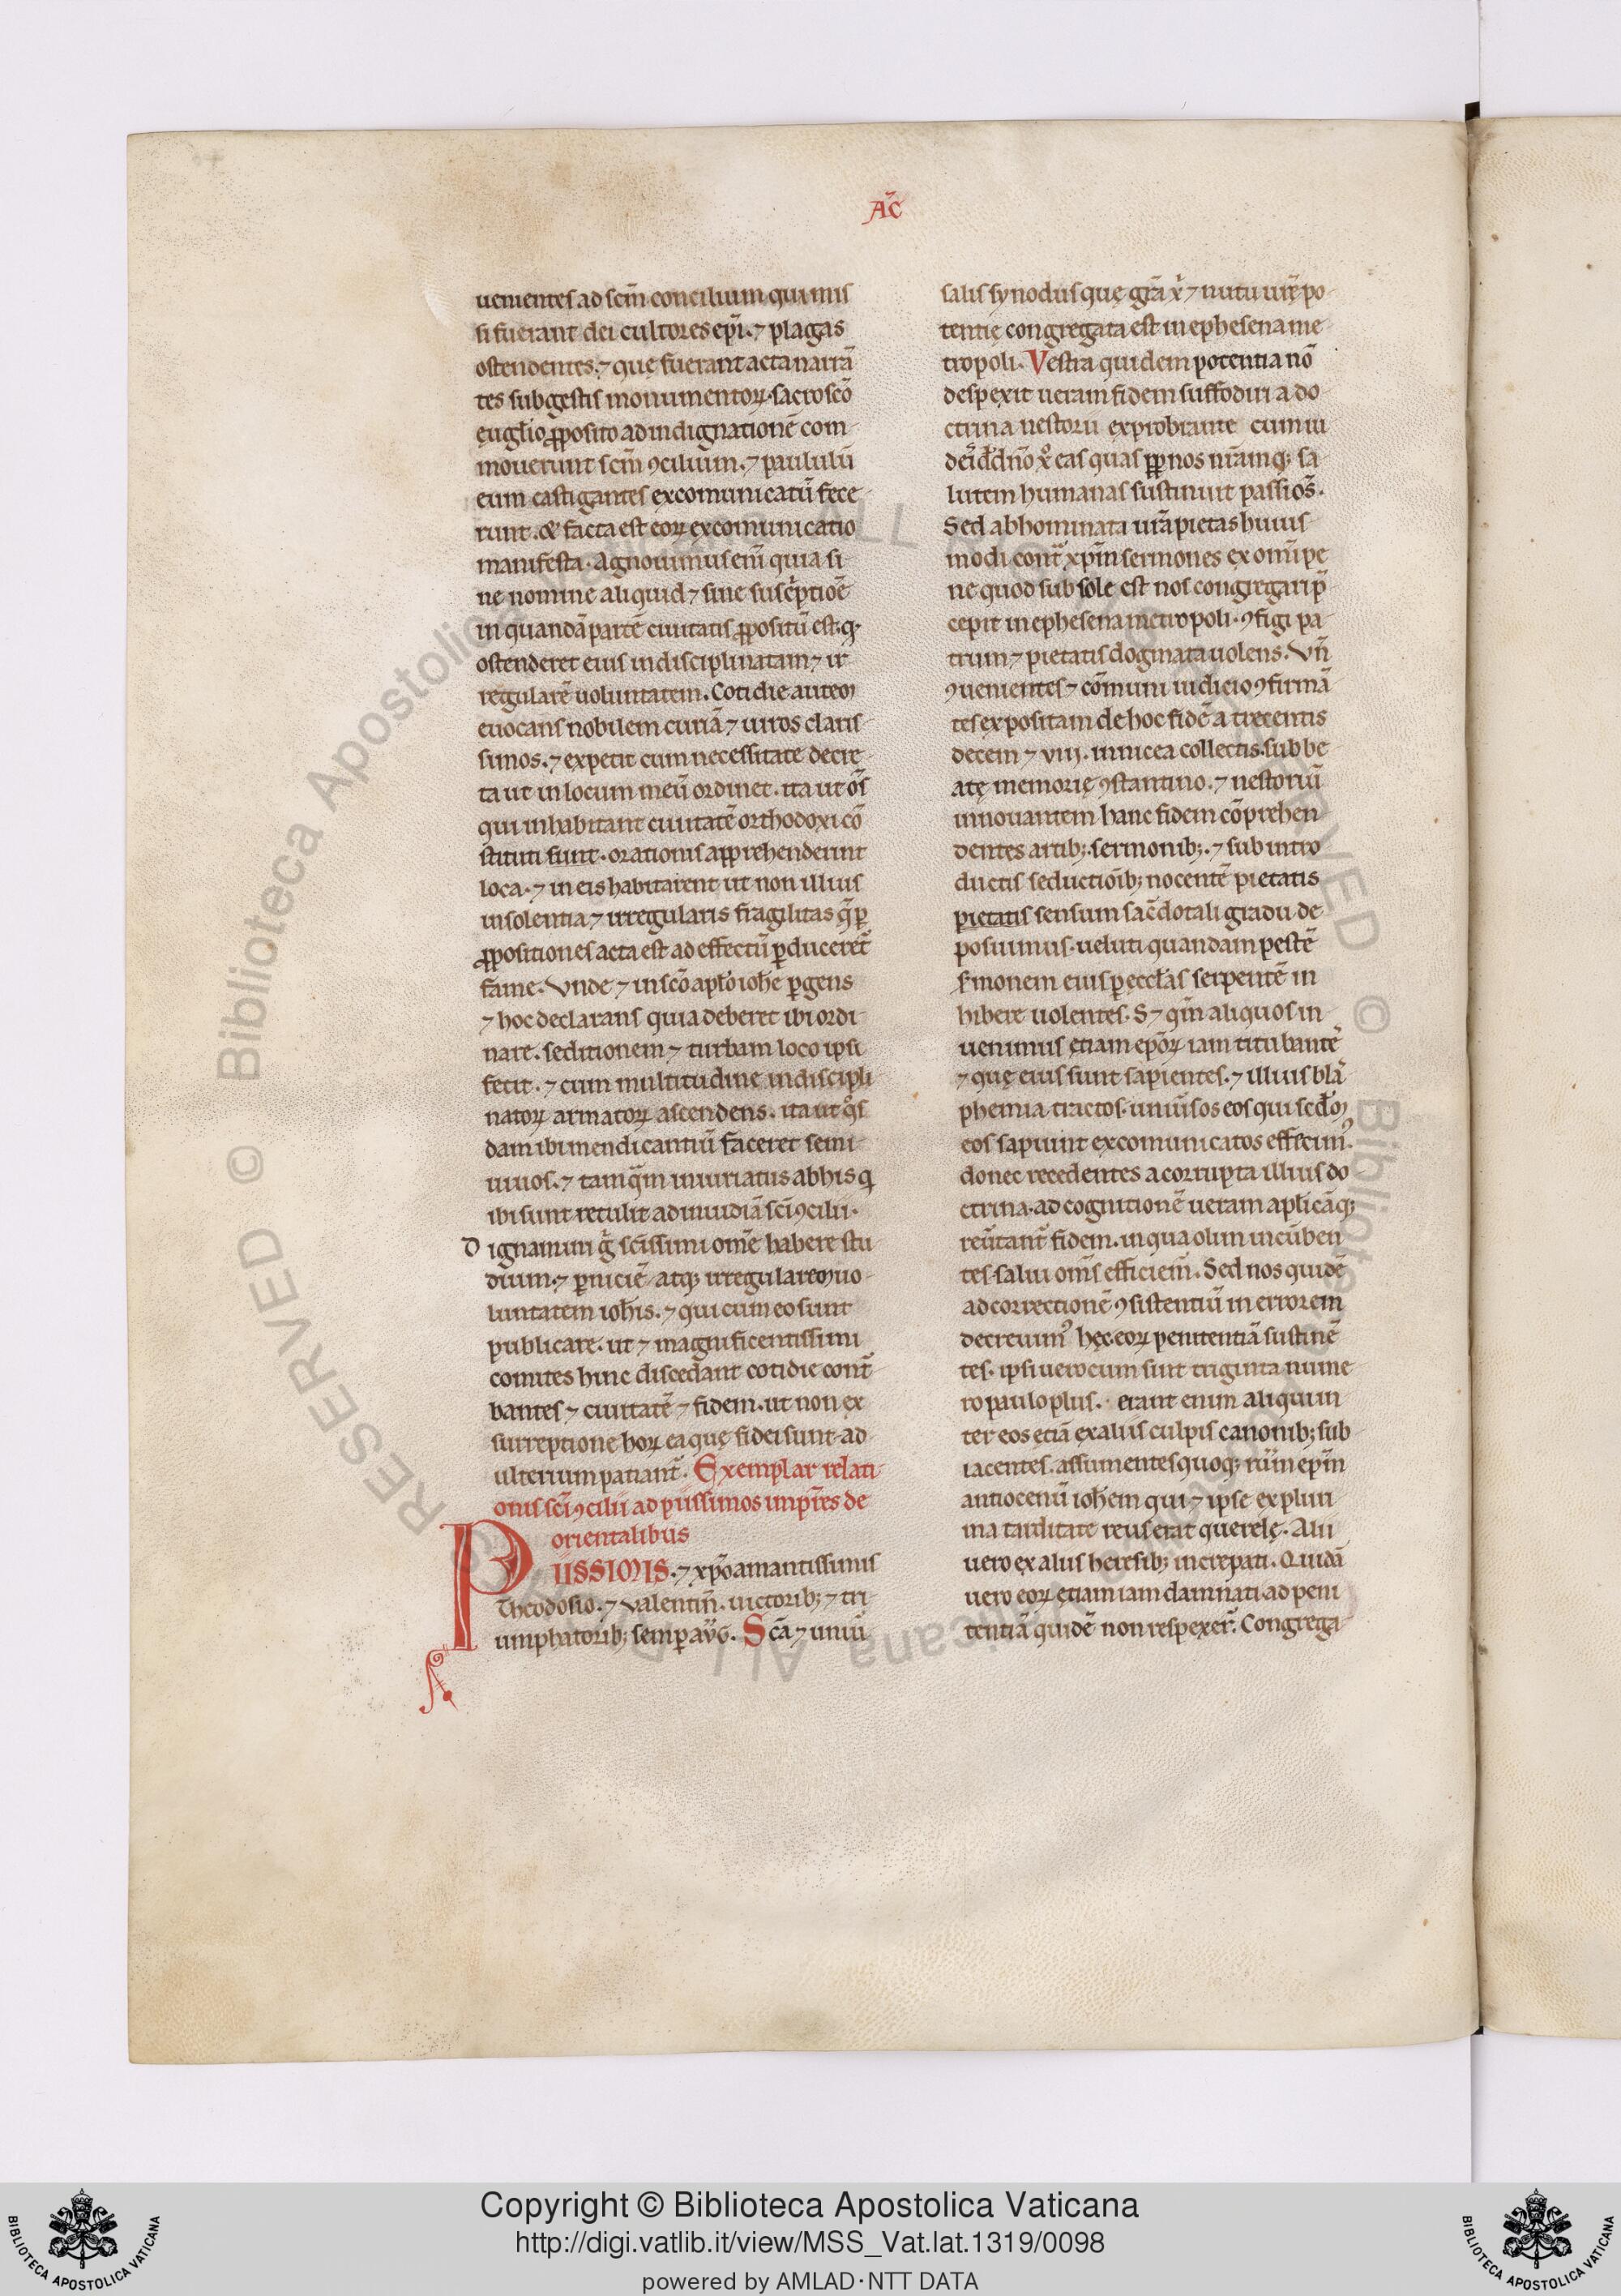 AC̄
uenientes ad scm̄ concilium qui mis
si fuerant dei cultores epı̄. ⁊ plagas
ostendentes. ⁊ que̜ fuerant acta narrā
tes subgestis monumentoꝝ. sacroscō
eug̜lio ꝓposito ad indignationē com
mouerunt scm̄ ꝯcilium. ⁊ paululū
eum castigantes excomunicatū fece
runt. & facta est eoꝝ excomunicatio
manifesta. Agnouimus eni̅ quia si
ne nomine aliquid ⁊ sine suscͥptioē
in quandā partē ciuitatis ꝓpositū est. q̇
ostenderet eius indisciplinatam ⁊ ir
regularē uoluntatem. Cotidie autem
euocans nobilem curiā ⁊ uiros claris
simos. ⁊ expetit cum necessitate decre
ta ut in locum meū ordinet. ita ut os̄
qui inhabitant ciuitatē orthodoxi cō
stituti sunt. orationis apprehenderint
loca. ⁊ in eis habitarent ut non illius
insolentia ⁊ irregularis fragilitas q̄ ꝑ
ꝓpositiones acta est ad effectū ꝑduceret᷑
fame. Vnde ⁊ in scō apl̄o ioh̄e ꝑgens
⁊ hoc declarans quia deberet ibi ordi
nare. seditionem ⁊ turbam loco ipsi
fecit. ⁊ cum multitudine indiscipli
natoꝝ armatoꝝ ascendens. ita ut qͦs
dam ibi mendicantiū faceret semi
uiuos. ⁊ tamqͣm iniuriatus ab his q̇
ibi sunt retulit ad inuidiā scī ꝯcilii.
Dignamini gͦ scissimi om̄e habere stu
dium. ⁊ ꝑniciē atqꝫ irregularem uo
luntatem ioh̄is. ⁊ qui cum eo sunt
publicare. ut ⁊ magnificentissimi
comites hinc discedant cotidie cont᷑
bantes ⁊ ciuitatē ⁊ fidem. ut non ex
surreptione hoꝝ ea que̜ fidei sunt ad
ulterium patiant᷑. Exemplar relati
onis scī ꝯcilii ad piissimos imp̄res de
orientalibus
PIISSIMIS. ⁊ xp̄o amantissimis
Theodosio. ⁊ Valentin̄. uictoribꝫ ⁊ tri
umphatoribꝫ semꝑ avḠ. Scā ⁊ uniū
salis synodus que̜ grā xͥ ⁊ nutu ur̄e̜ po
tentie̜ congregata est in ephesena me
tropoli. Vestra quidem potentia nō
despexit ueram fidem suffodiri a do
ctrina nestorii exprobrante cum iu
dei dd̄ n̄o xͦ eas quas ꝓp nos nr̄amqꝫ sa
lutem humanas sustinuit passios̄.
Sed abhominata ur̄a pietas huius
modi contͣ xp̄m sermones ex om̄i pe
ne quod sub sole est nos congregari p̄
cepit in ephesena metropoli. ꝯfigi pa
trum ⁊ pietatis dogmata uolens. Vn̄
ꝯuenientes ⁊ cōmuni iudicio ꝯfirmā
tes expositam de hoc fidē a trecentis
decem ⁊ viij. in nicea collectis. sub be
ate̜ memorie̜ ꝯstantino. ⁊ nestoriū
innouantem hanc fidem cōprehen
dentes artibꝫ. sermonibꝫ. ⁊ subintro
ductis seductiōibꝫ nocentē pietatis
pietatis sensum sac̄dotali gradu de
posuimus. ueluti quandam pestē
s̄monem eius ꝑ eccl̄as serpentē in
hibere uolentes. S ⁊ qm̄ aliquos in
uenimus etiam ep̄oꝝ iam titubantē
⁊ que̜ eius sunt sapientes. ⁊ illius blā
phemia tractos. uniūsos eos qui scd̄m
eos sapiunt excomunicatos effecimꝰ.
donec recedentes a corrupta illius do
ctrina. ad cognitionē ueram aplicāqꝫ
reūtant᷑ fidem. in qua olim incūben
tes salui om̄s efficiem̄. Sed nos quidē
ad correctionē ꝯsistentiū in errorem
decreuimꝰ hec̜ eoꝝ penitentiā sustinē
tes. ipsi uero cum sint triginta nume
ro paulo plus. erant enim aliquun
ter eos etiā ex aliis culpis canonibꝫ sub
iacentes. assumentes quoqꝫ rur̄m ep̄m
antiocenū ioh̄em qui ⁊ ipse ex pluri
ma tarditate reus erat querele̜. Alii
uero ex aliis heresibꝫ increpati. Quidā
uero eoꝝ etiam iam damnati. ad peni
tentiā quidē non respexer̄. Congrega
© Biblioteca Apostolica Vaticana ALL RIGHTS RESERVED
BIBLIOTECA APOSTOLICA VATICANA
Copyright © Biblioteca Apostolica Vaticana
http://digi.vatlib.it/view/MSS_Vat.lat.1319/0098
powered by AMLAD·NTT DATA
BIBLIOTECA APOSTOLICA VATICANA